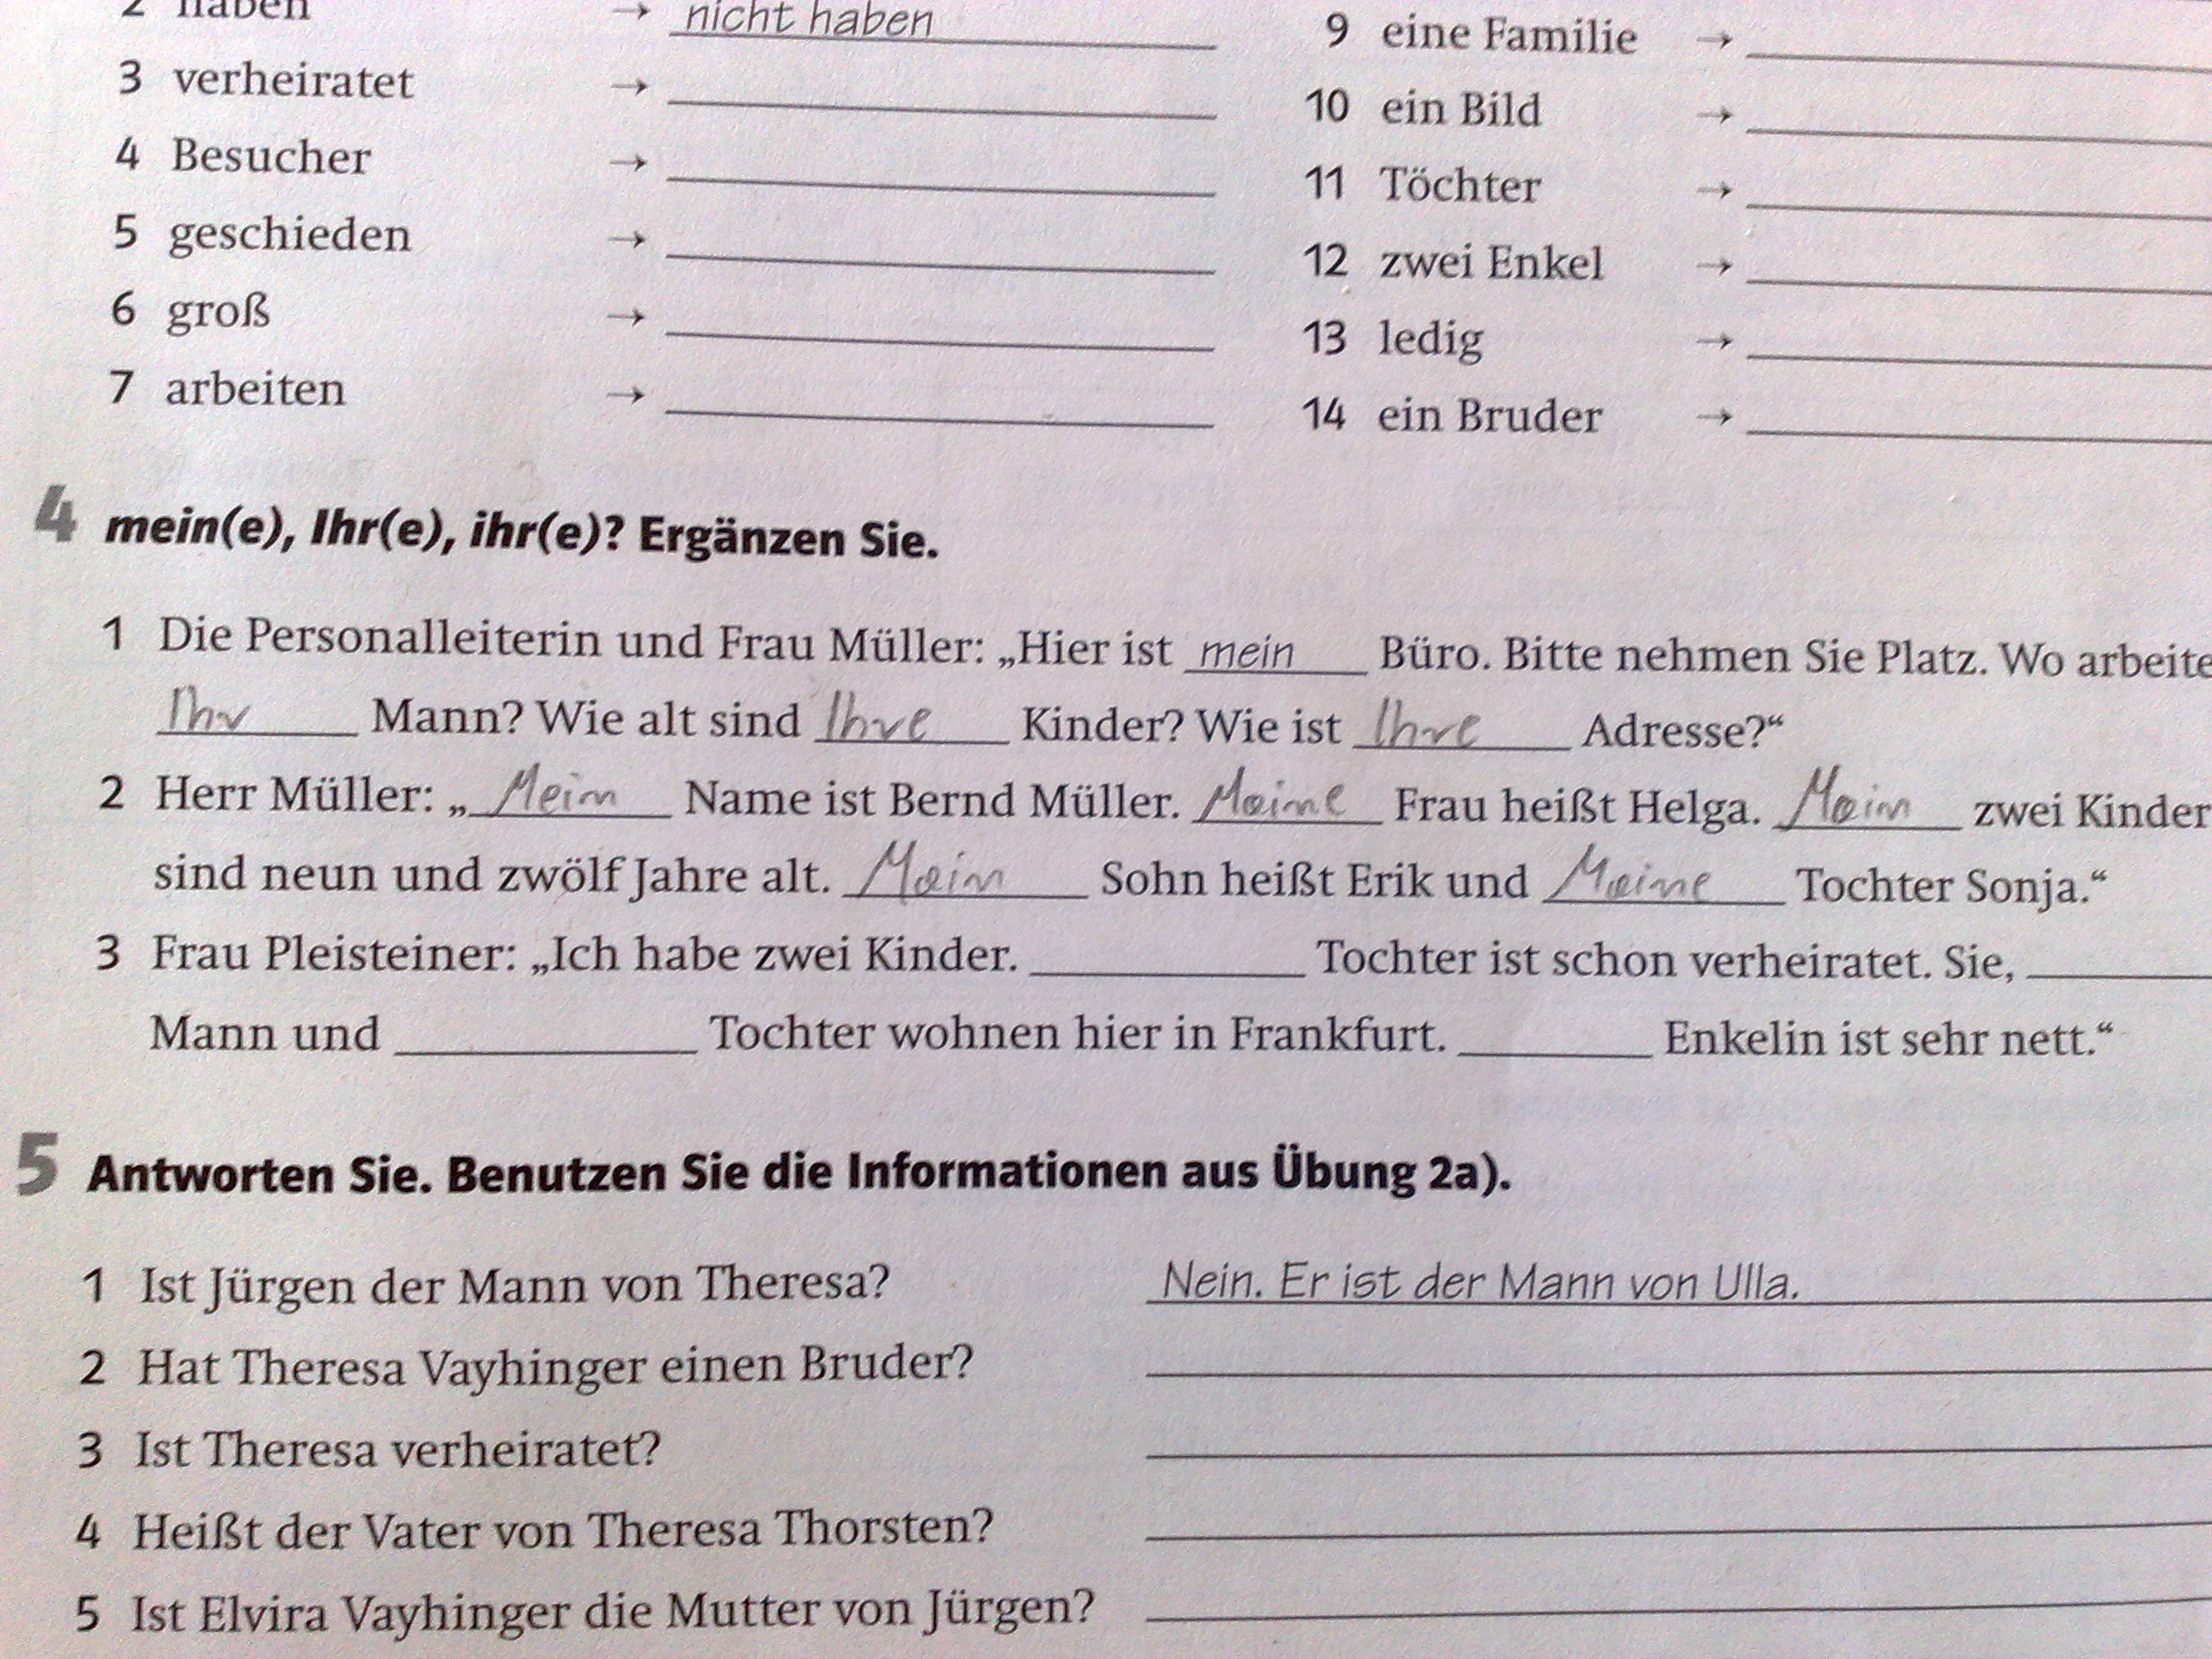 2 haben → nicht haben
9 eine Familie →
3 verheiratet →
10 ein Bild →
4 Besucher →
11 Töchter →
5 geschieden →
12 zwei Enkel →
6 groß →
13 ledig →
7 arbeiten →
14 ein Bruder →
4 mein(e), Ihr(e), ihr(e)? Ergänzen Sie.
1 Die Personalleiterin und Frau Müller: „Hier ist mein Büro. Bitte nehmen Sie Platz. Wo arbeite
Ihr Mann? Wie alt sind Ihre Kinder? Wie ist Ihre Adresse?“
2 Herr Müller: „ Mein Name ist Bernd Müller. Meine Frau heißt Helga. Mein zwei Kinder
sind neun und zwölf Jahre alt. Mein Sohn heißt Erik und Meine Tochter Sonja.“
3 Frau Pleisteiner: „Ich habe zwei Kinder. ________ Tochter ist schon verheiratet. Sie, ________
Mann und ________ Tochter wohnen hier in Frankfurt. ________ Enkelin ist sehr nett.“
5 Antworten Sie. Benutzen Sie die Informationen aus Übung 2a).
1 Ist Jürgen der Mann von Theresa? Nein. Er ist der Mann von Ulla.
2 Hat Theresa Vayhinger einen Bruder?
3 Ist Theresa verheiratet?
4 Heißt der Vater von Theresa Thorsten?
5 Ist Elvira Vayhinger die Mutter von Jürgen?